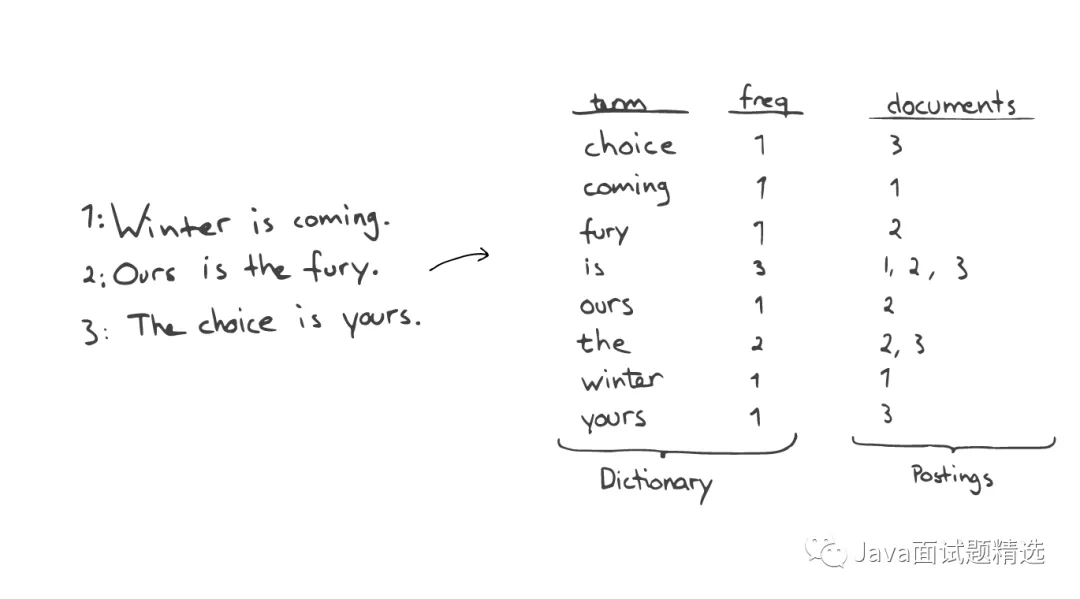 1: Winter is coming.
2: Ours is the fury.
3: The choice is yours.
term freq documents
choice 1 3
coming 1 1
fury 1 2
is 3 1, 2, 3
ours 1 2
the 2 2, 3
winter 1 1
yours 1 3
Dictionary Postings
Java面试题精选